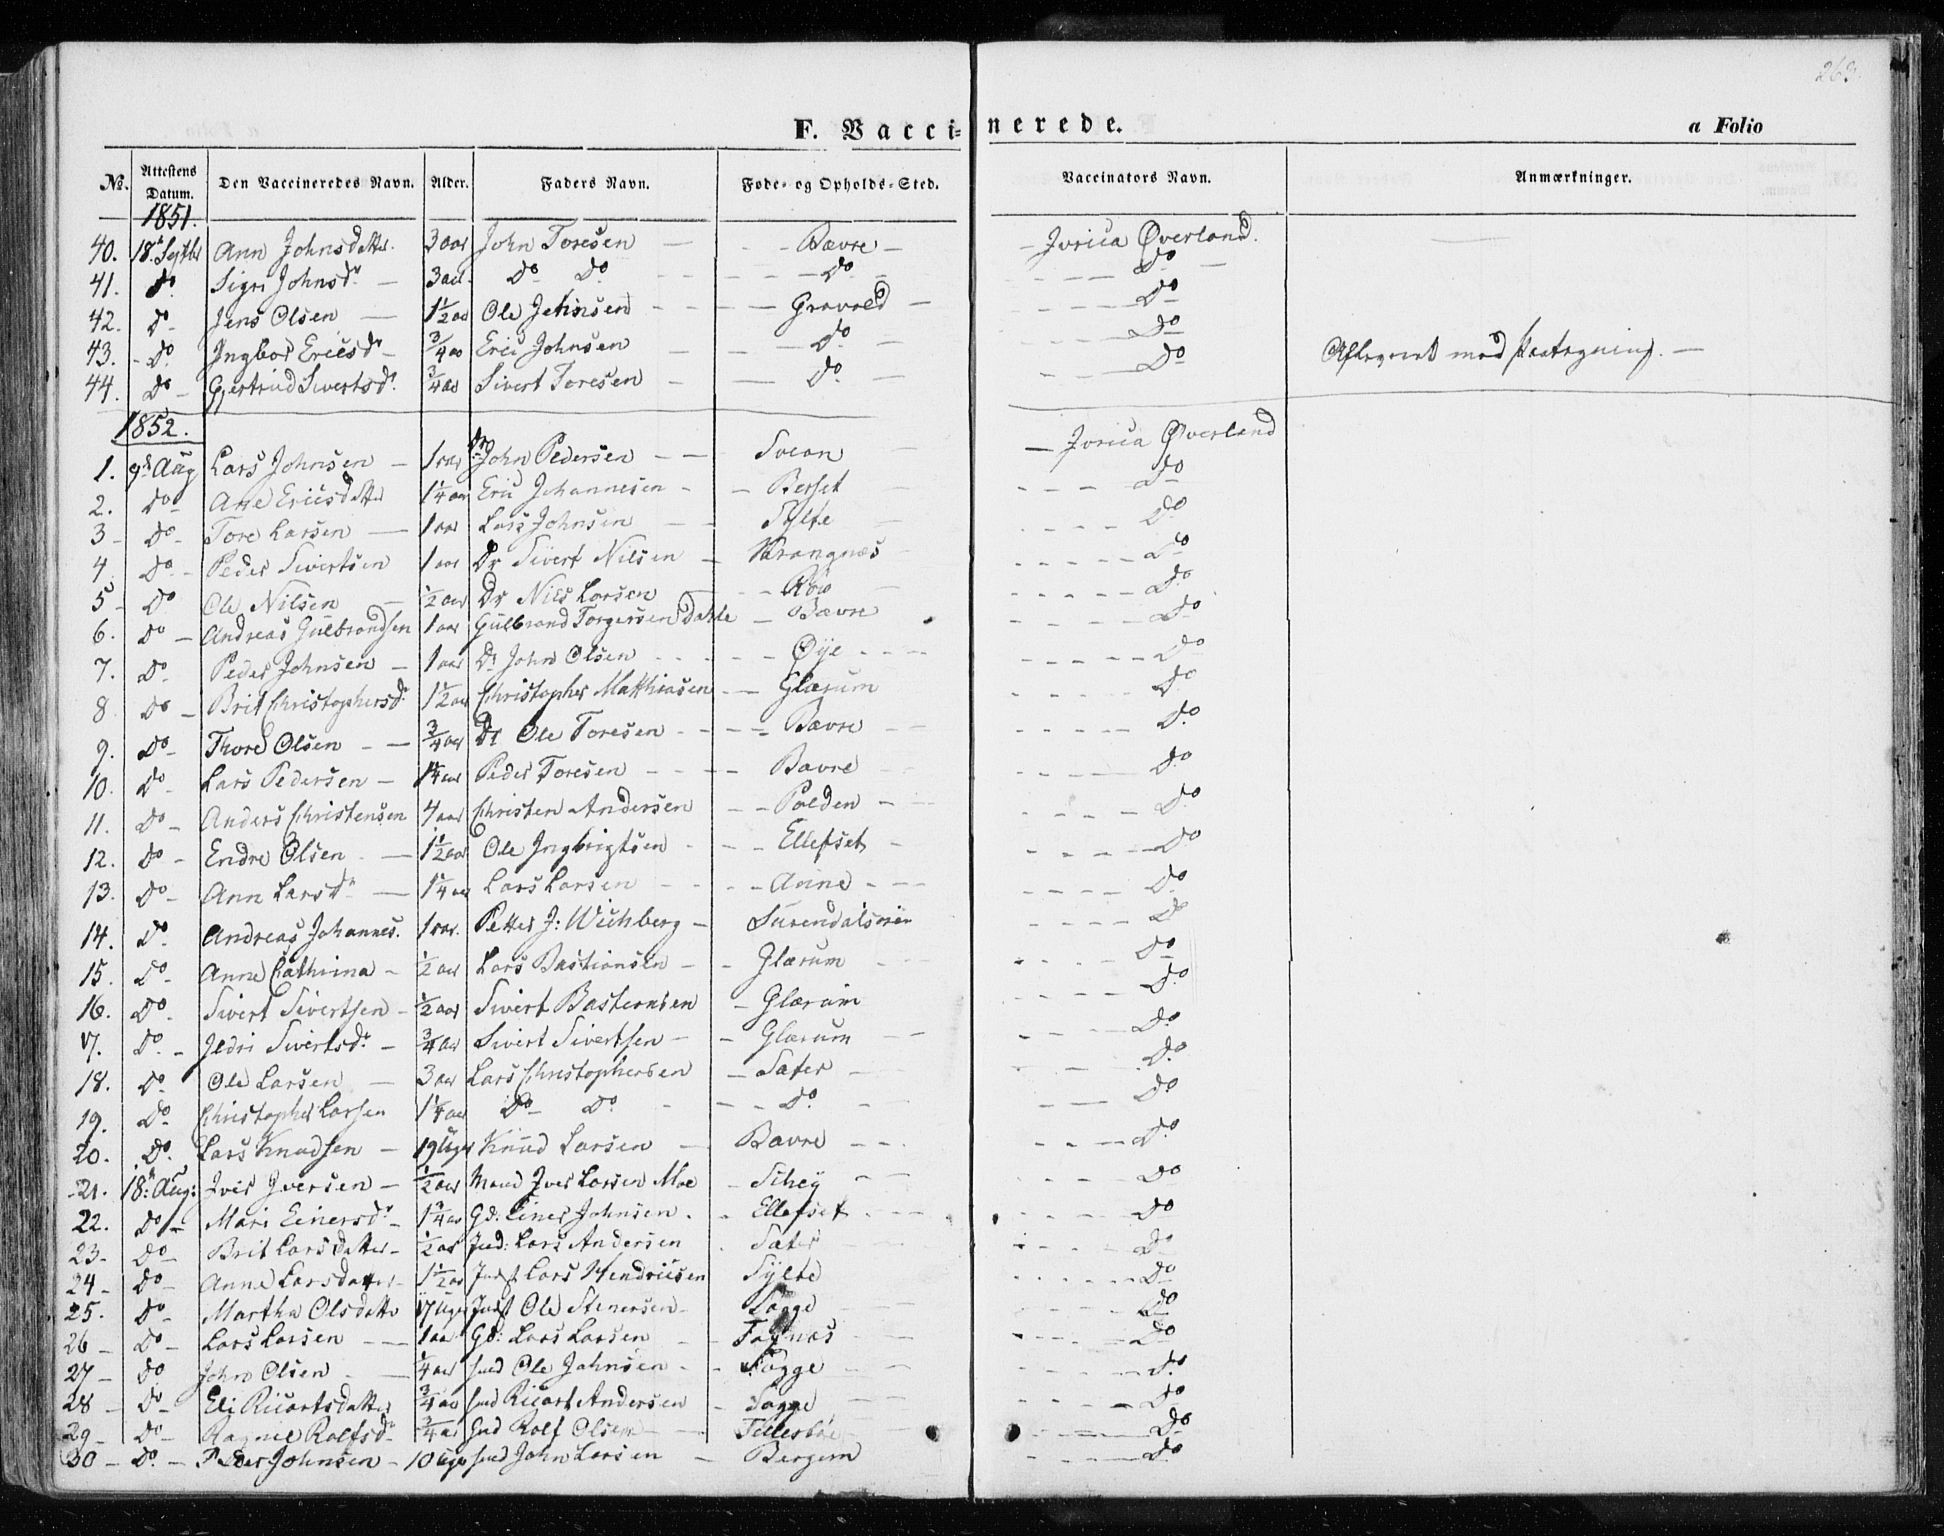 263.
F. Vaccinerede.
a Folio
No. Attestens Datum. Den Vaccineredes Navn. Alder. Faders Navn. Føde- og Opholds-Sted. Vaccinators Navn. Anmærkninger.
1851.
40. 18. Septbr Ann Johnsdatter. 3 aar John Toresen — Bævre — Øverland.
41. Do. Sigri Johnsdr — 3 aar. Do Do — Do — Do
42. Do Jens Olsen — 1 1/2 aar Ole Johnsen — Gravold — Do
43. Do. Ingbor Ericsdr — 3/4 aar Eric Johnsen — Do — Do
44. Do — Gjertrud Sivertsdr. 3/4 aar Sivert Toresen — Do. — Do Afleveret med Paategning. —
1852.
1. 9de Aug Lars Johnsen — 1 aar John Pedersen — Svean — Øverland
2. Do Ane Ericsdatter 1 1/4 aar Eric Johannesen — Berset Do
3 — Do — Tore Larsen — 1 aar Lars Johnsen — Sylte Do
4. Do — Peder Sivertsen 1 aar Dr Sivert Nilsen — Krangnæs Do
5 — Do Ole Nilsen — 1/2 aar Dr Nils Larsen — Røv Do
6. Do — Andreas Gulbrandsen 1 aar Gulbrand Torgersen Dahle — Bævre Do
7. Do Peder Johnsen — 1 aar Dr John Olsen — Øye Do
8 Do — Brit Christophersdr 1 1/2 aar Christopher Matthiasen — Glærum Do
9. Do — Thore Olsen — 3/4 aar Dr Ole Toresen — Bævre Do
10. Do Lars Pedersen — 1 1/4 aar Peder Toresen — Bævre Do
11. Do — Anders Christensen 4 aar Christen Andersen — Polden Do
12. Do — Endre Olsen — 1 1/2 aar Ole Ingbrigtsen — Ellefset — Do
13. Do — Ann Larsdr — 1 1/4 aar Lars Larsen — Do
14. Do. Andreas Johannes. 1 aar. Petter J: Wichberg — Surendalsøren Do
15. Do — Anne Cathrina — 1/2 aar Lars Bastiansen — Glærum Do
16. Do Sivert Sivertsen — 1/2 aar Sivert Basteansen — Glærum Do
17. Do. — Ildri Sivertsdr — 3/4 aar Sivert Sivertsen — Glærum Do
18. Do Ole Larsen — 3 aar Lars Christophersen — Sæter — Do
19. Do Christopher Larsen 1 1/4 aar Do — Do. — Do. Do
20. Do. Lars Knudsen — 19 Uger Knud Larsen — Bævre Do
21. 18. Aug: Iver Iversen — 1/2 aar Iver Larsen Moe — Do
22. Do — Mari Einersdr — 1 3/4 aar Gd: Einer Johnsen. Ellefset Do
23 — Do — Brit Larsdatter — 1/2 aar Lars Andersen Sæter Do
24 — Do — Anne Larsdatter — 1 1/2 aar Lars Hendricsen Sylte Do
25. Do — Martha Olsdatter 17 Uger Ole Stenersen — Sogge Do
26 — Do — Lars Larsen — 1 aar Gd: Lars Larsen — Fagnæs Do
27 — Do John Olsen — 1/4 aar Ole Johnsen — Sogge Do
28 — Do — Eli Ricartsdatter 3/4 aar Ricart Andersen — Sogge Do
29 — Do — Ragnil Rolfsdr 3/4 aar Rolf Olsen — Do
30 — Do. — Peder Johnsen — 10 Uger John Larsen — Bergem Do